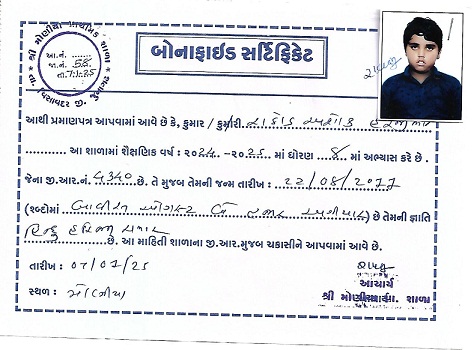 શ્રી મોણીયા પ્રાથમિક શાળા
આ.નં.
જા.નં. 58
તા. 7.1.25
તા. વિસાવદર જી. જુનાગઢ
બોનાફાઈડ સર્ટિફિકેટ
આથી પ્રમાણપત્ર આપવામાં આવે છે કે, કુમાર / કુમારી
આ શાળામાં શૈક્ષણિક વર્ષ : ૨૦૨૪ -૨૦૨૫ માં ધોરણ ૪ માં અભ્યાસ કરે છે .
જેના જી.આર.નં. 4340 છે. તે મુજબ તેમની જન્મ તારીખ : 22/08/2011
(શબ્દોમાં બાવીસ ઓગસ્ટ બે હજાર અગીયાર) છે તેમની જ્ઞાતિ
હિન્દુ છે. આ માહિતી શાળાના જી.આર.મુજબ ચકાસીને આપવામાં આવે છે.
તારીખ : 07/01/25
સ્થળ : મોણીયા
આચાર્ય
શ્રી મોણીયા પ્રા. શાળા